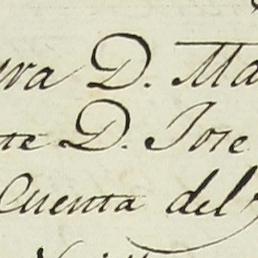 D. Ma
D. Jose
Cuenta del